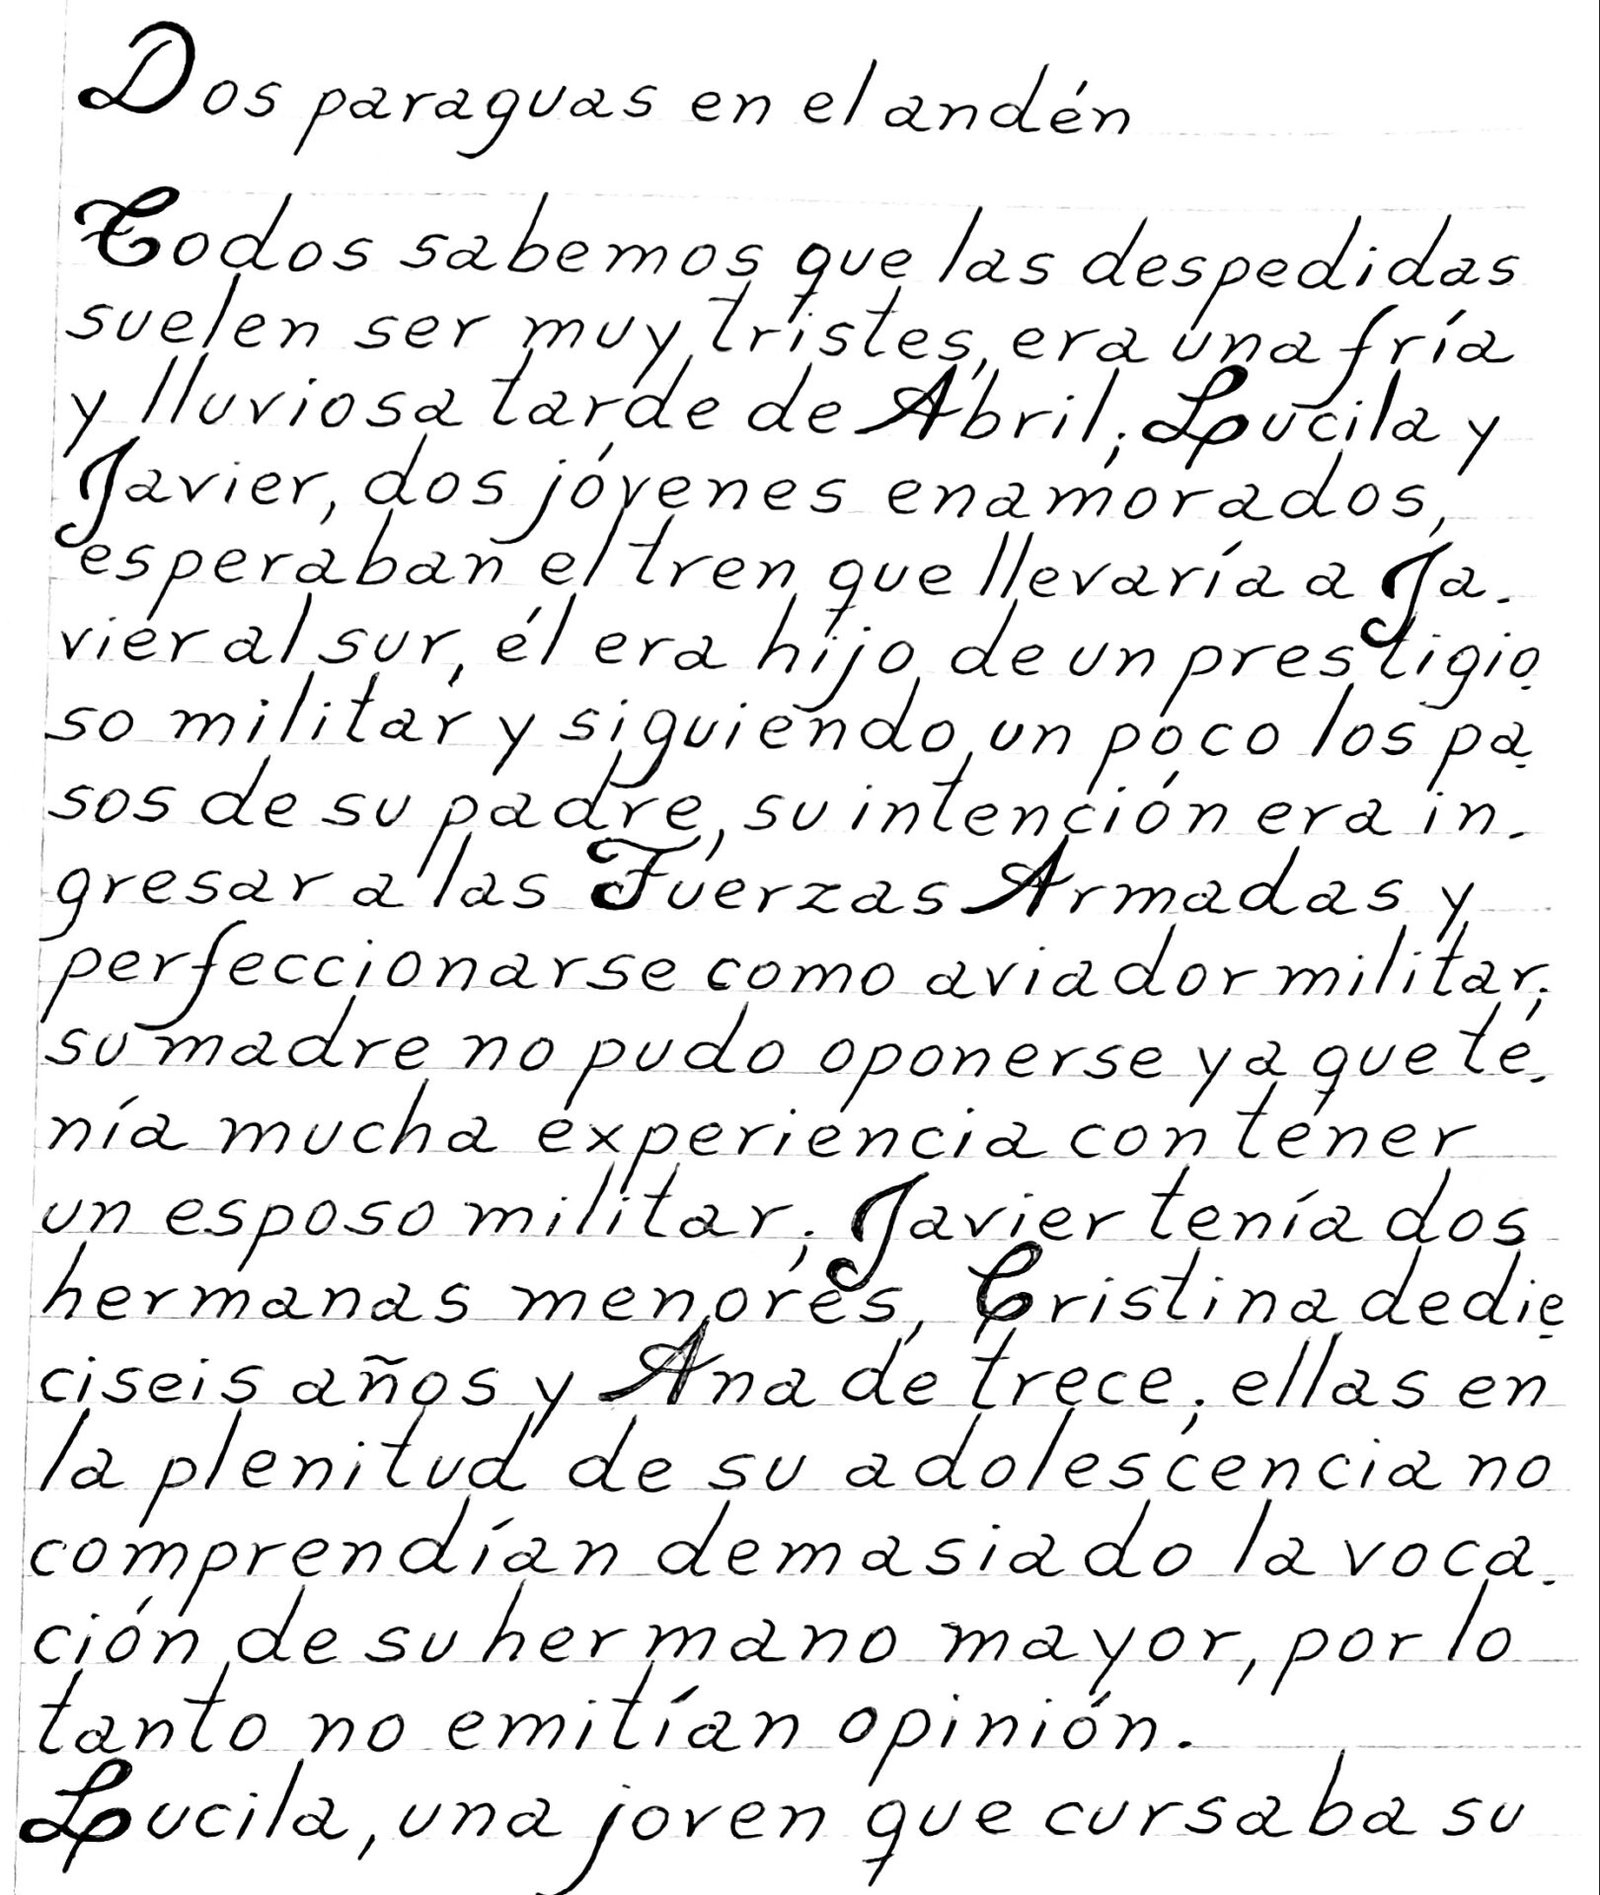 Dos paraguas en el andén
Todos sabemos que las despedidas
suelen ser muy tristes, era una fría
y lluviosa tarde de Abril; Lucila y
Javier, dos jóvenes enamorados,
esperaban el tren que llevaría a Ja-
vier al sur, él era hijo de un prestigio-
so militar y siguiendo un poco los pa-
sos de su padre, su intención era in-
gresar a las Fuerzas Armadas y
perfeccionarse como aviador militar;
su madre no pudo oponerse ya que te-
nía mucha experiencia con tener
un esposo militar; Javier tenía dos
hermanas menores, Cristina de die-
ciseis años y Ana de trece; ellas en
la plenitud de su adolescencia no
comprendían demasiado la voca-
ción de su hermano mayor, por lo
tanto no emitían opinión.
Lucila, una joven que cursaba su